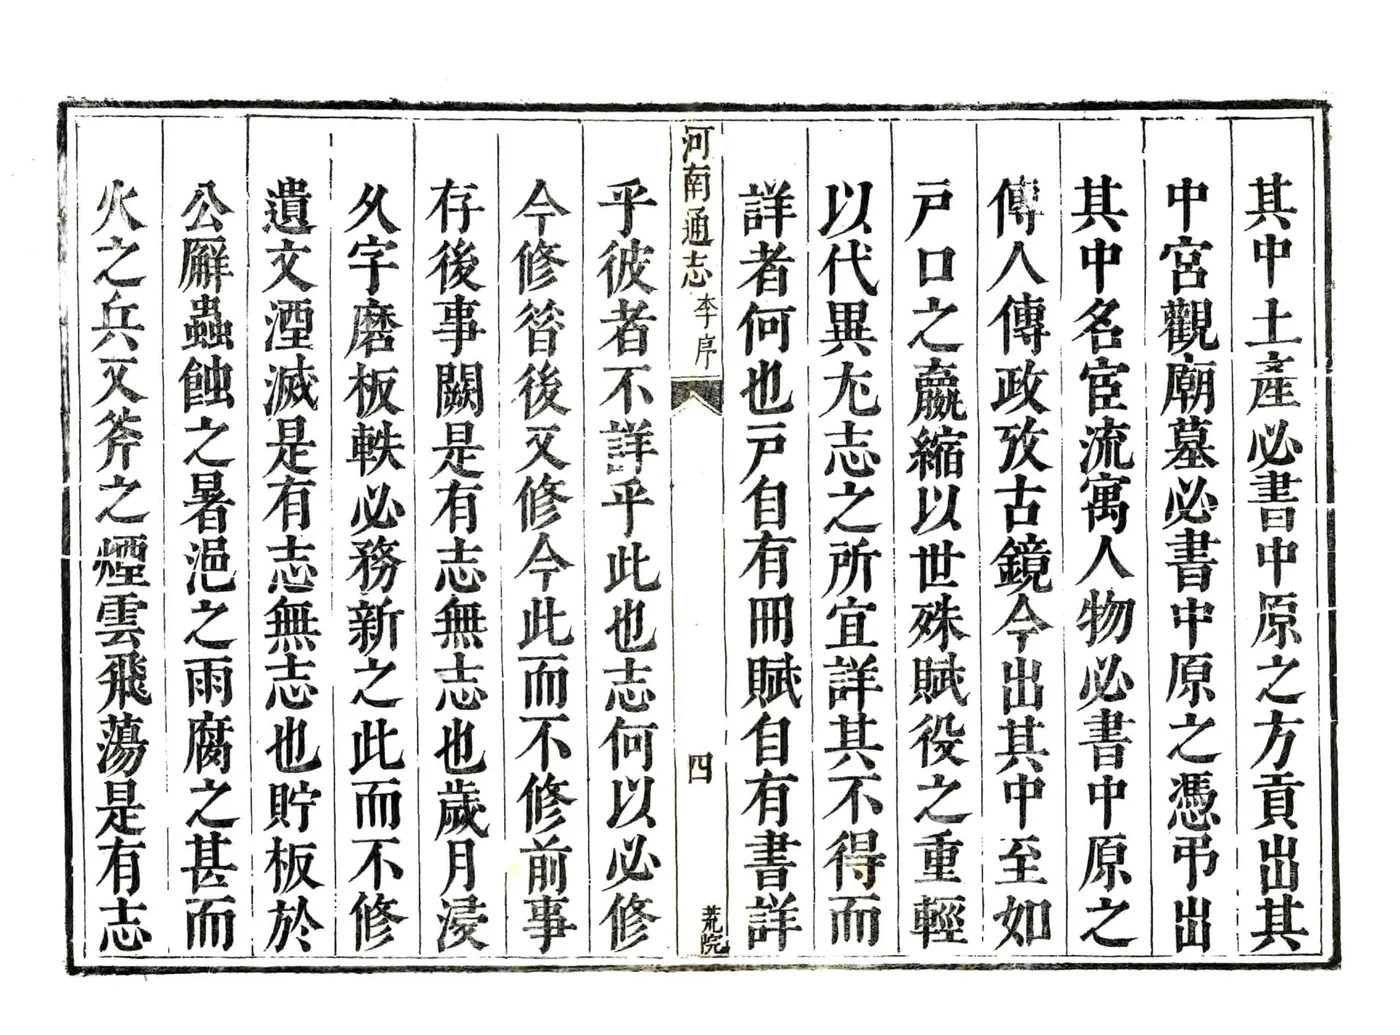 其中土產必書中原之方貢出其
中宮觀廟墓必書中原之憑弔出
其中名宦流寓人物必書中原之
傳人傳政攷古鏡今出其中至如
戸口之贏縮以世殊賦役之重輕
以代異尢志之所宜詳其不得而
詳者何也戸自有冊賦自有書詳
河南通志
李序
四
乎彼者不詳乎此也志何以必修
今修晉後又修今此而不修前事
存後事闕是有志無志也歲月浸
久字磨板軼必務新之此而不修
遺文湮滅是有志無志也貯板於
公廨蟲蝕之暑浥之雨腐之甚而
火之兵又斧之煙雲飛蕩是有志